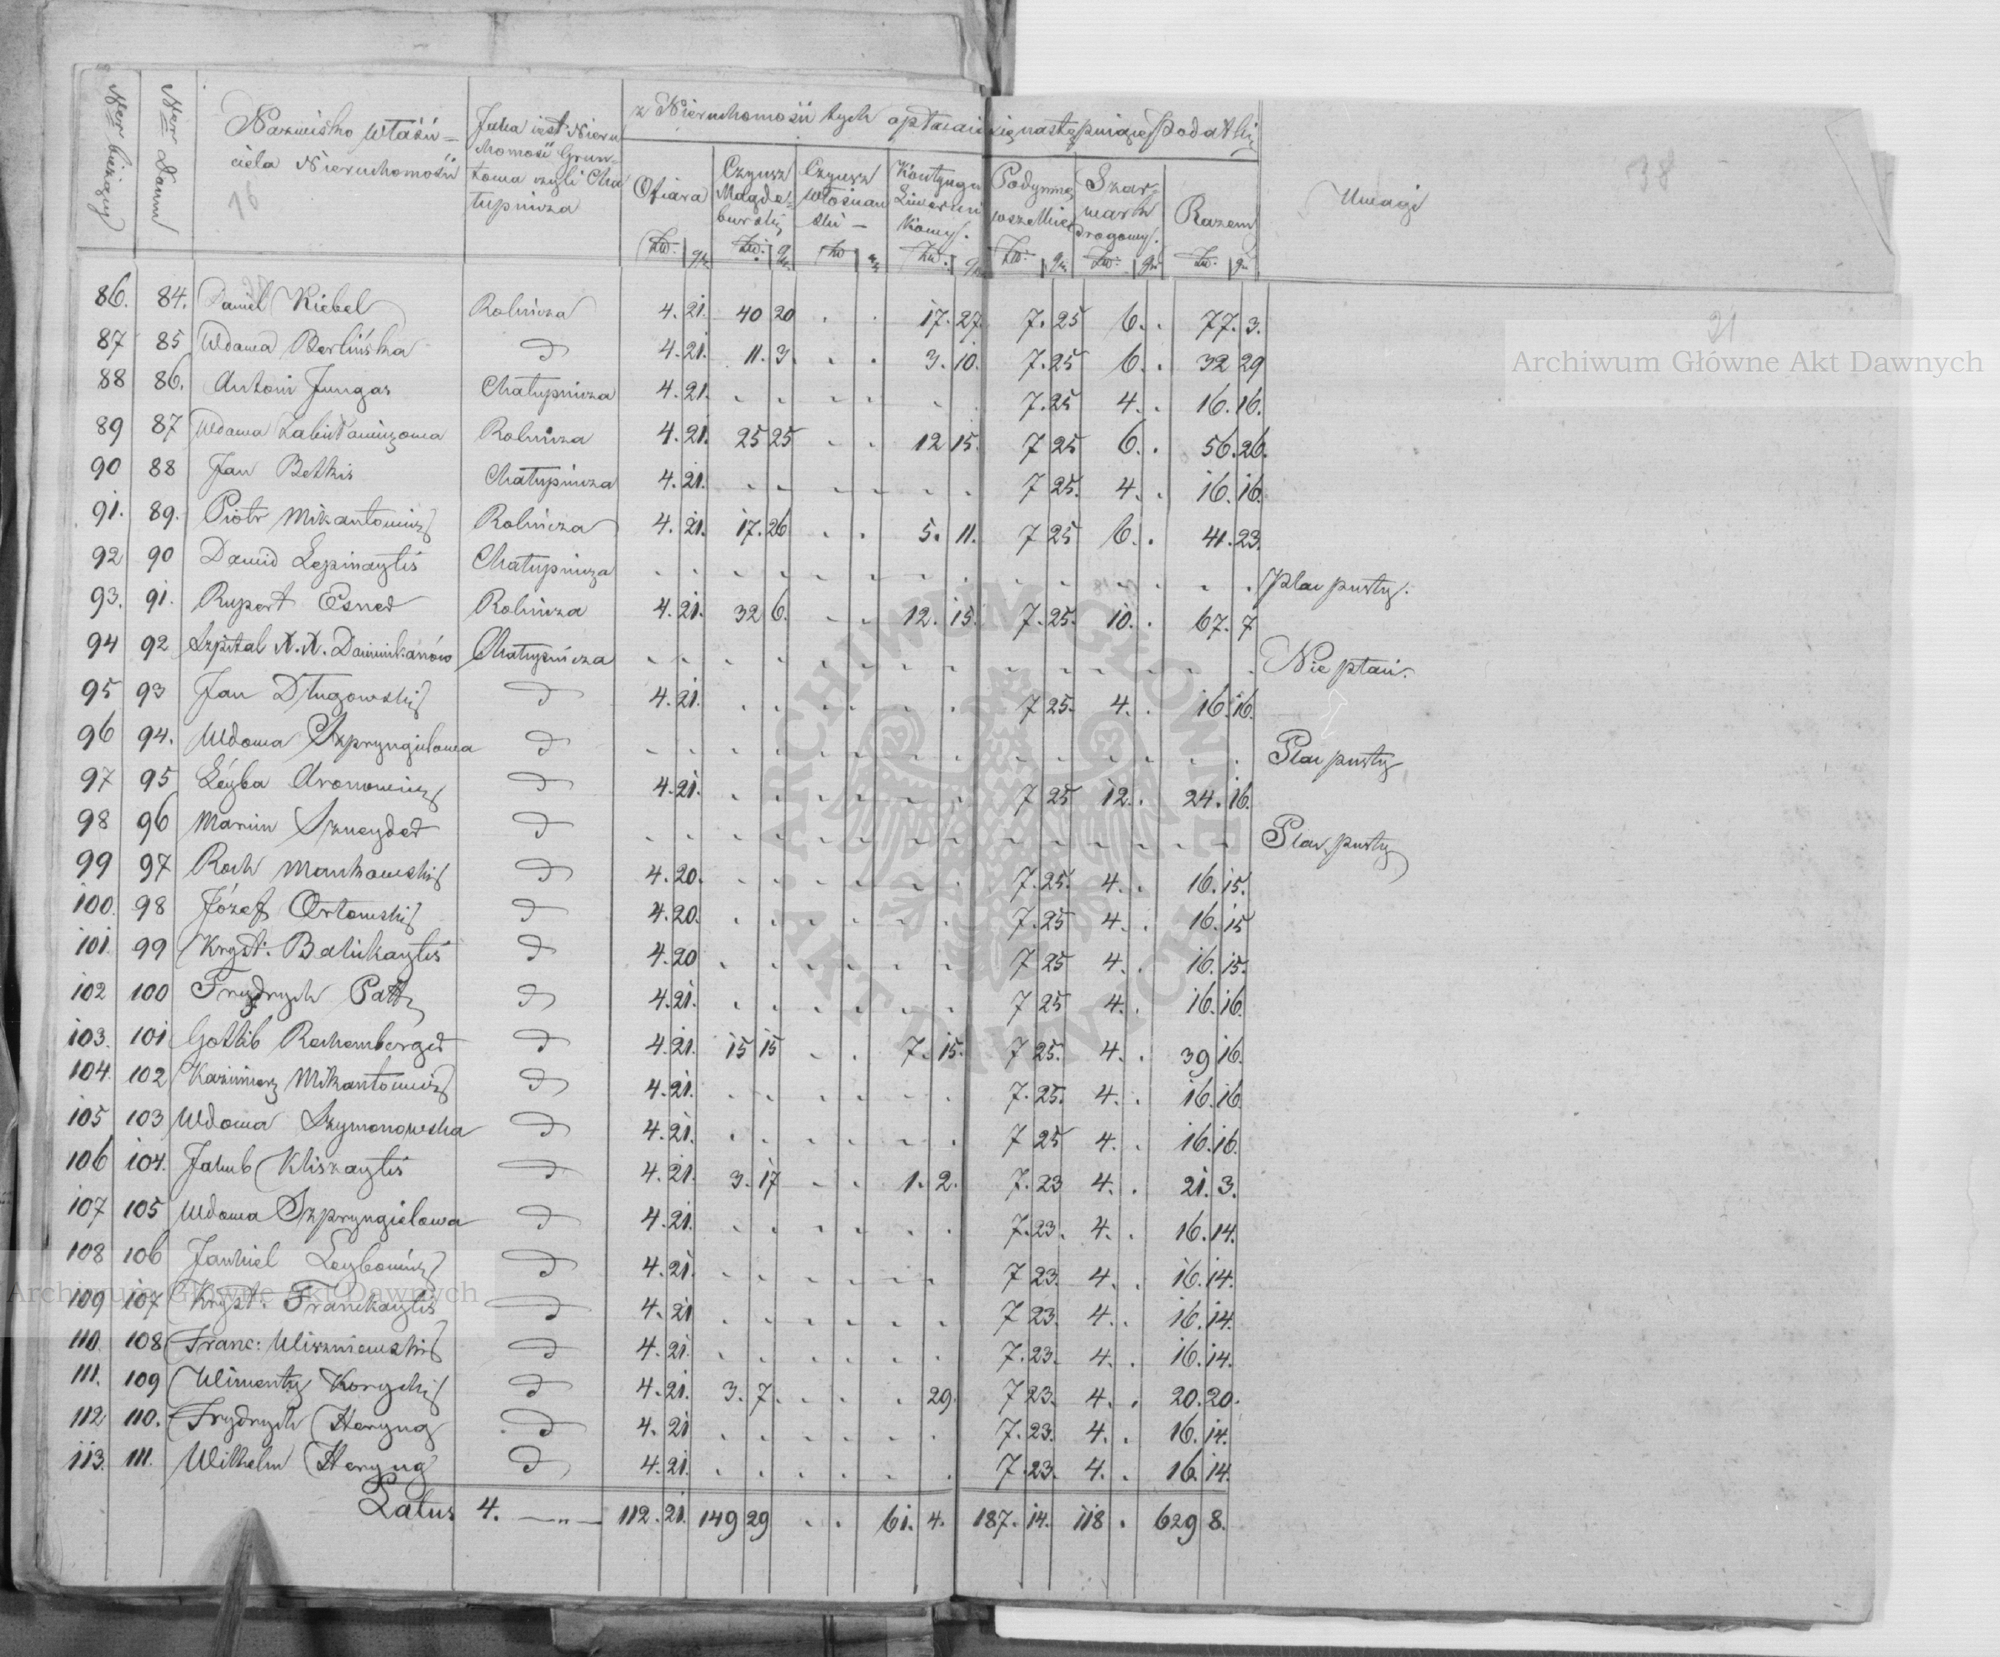 Ner bieżący | Ner Domu | Nazwisko właści=ciela Nieruchomości | Jaka iest Nieruchomość Gruntowa czyli Chałupnicza | z Nieruchomości tych opłacaią się następuiące Podatki | Uwagi
Ofiara Zł: gr. | Czynsz Magdeburski Zł: gr. | Czynsz włościański Zł gr | Kontyngens Liwerunkowy. Zł. gr. | Podymne wszelkie Zł: gr. | Szarwark drogowy. Zł: gr | Razem Zł: gr
16
38
21
86. 84. Daniel Kiebel Rolnicza 4. 21. 40 20 . . 17. 27. 7. 25 6. . 77. 3.
87 85 Wdowa Berlińska D 4. 21. 11. 3. . . 3. 10. 7. 25 6. . 32 29
88 86. Antoni Jungas Chałupnicza 4. 21. 7. 25 4. . 16. 16.
89 87 Wdowa Rolnicza 4. 21. 25 25 . . 12 15. 7 25 6. . 56. 26.
90 88 Jan Betkis Chałupnicza 4. 21. 7 25. 4. . 16. 16.
91. 89. Piotr Mikantowicz Rolnicza 4. 21. 17. 26 . . 5. 11. 7 25 6. . 41. 23.
92 90 Dawid Lepinaytis Chałupnicza Plac pusty.
93. 91. Rupert Esner Rolnicza 4. 21. 32 6. . . 12. 15. 7. 25. 10. . 67. 7
94 92 Szpital X.X. Dominikanów Chałupnicza Nie płaci.
95 93 Jan Długowski D 4. 21. 7 25. 4. . 16. 16.
96 94. Wdowa Szpryngielowa D Plac pusty
97 95 Leyba Aronowicz D 4. 21. 7 25 12. . 24. 16.
98 96 Marcin Szneyder D Plac pusty
99 97 Roch Mankowski D 4. 20. 7. 25. 4. . 16. 15.
100. 98 Józef Orłowski D 4. 20. 7. 25 4. . 16. 15
101. 99 Kryst: Balukaytis D 4. 20 7 25 4. . 16. 15.
102 100 Frydrych Patz D 4. 21. 7 25 4. . 16. 16.
103. 101 Gotlib Rechemberger D 4. 21. 15 15 . . 7. 15. 7 25. 4. . 39 16.
104. 102 Kazimierz Mikantowicz D 4. 21. 7. 25. 4. . 16. 16.
105 103 Wdowa Szymonowska D 4. 21. 7 25 4. . 16. 16.
106 104. Jakub Kliszaytis D 4. 21. 3. 17 . . 1. 2. 7. 23 4. . 21. 3.
107 105 Wdowa Szpryngielowa D 4. 21. 7. 23. 4. . 16. 14.
108 106 Jankiel Leybowicz D 4. 21. 7 23. 4. . 16. 14.
109 107 Kryst: Franckaytis D 4. 21 7 23. 4. . 16. 14.
110. 108 Franc: Wiszniewski D 4. 21. 7. 23. 4. . 16. 14.
111. 109 Wincenty Korycki D 4. 21. 3. 7. . . . 29. 7 23. 4. . 20. 20.
112 110. Frydrych Heryng D 4. 21 7. 23. 4. . 16. 14.
113. 111. Wilhelm Heryng D 4. 21. 7. 23. 4. . 16. 14.
Latus 4. 112. 21. 149 29 . . 61. 4. 187. 14. 118 . 629 8.
Archiwum Główne Akt Dawnych
Archiwum Główne Akt Dawnych
ARCHIWUM GŁÓWNE AKT DAWNYCH W